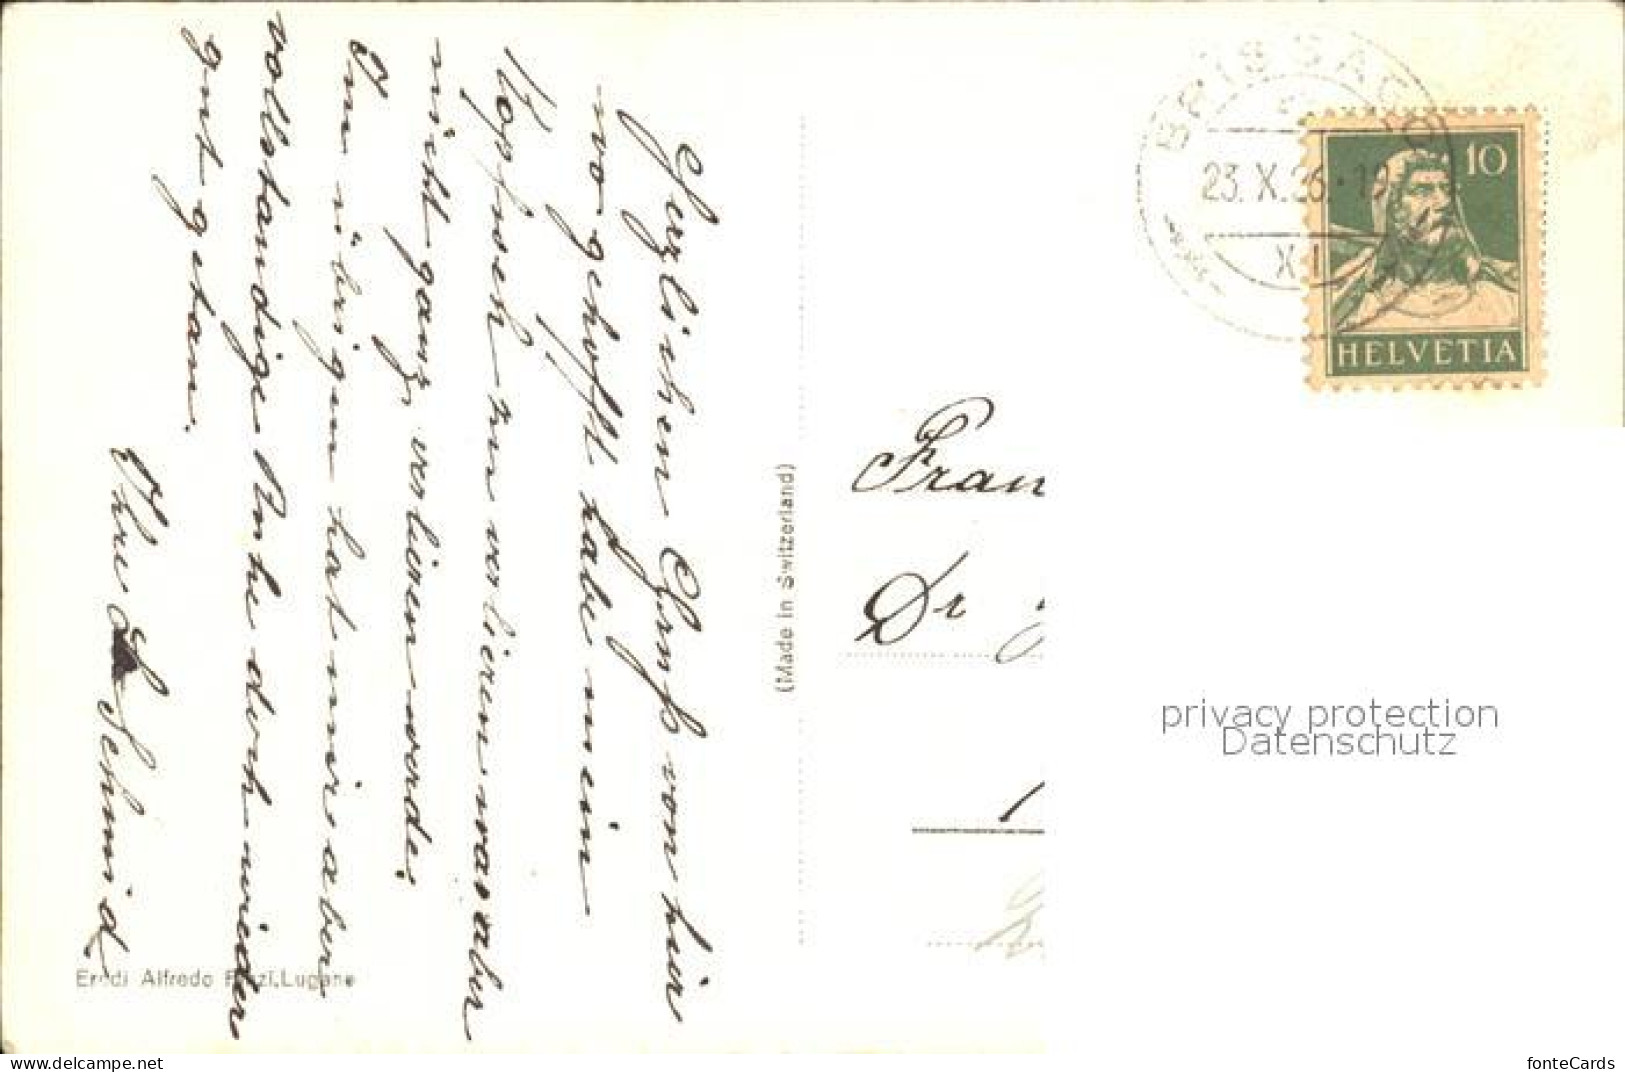 Herzlichen Gruß von hier
wo gehofft habe mein
Kopfweh zu verlieren was aber
nicht ganz verlieren werde.
Im übrigen hat mirs aber
vollständige Ruhe doch wieder
gut getan.
Ihre L Schmid
Eredi Alfredo Finzi, Lugano
(Made in Switzerland)
BRISSAGO
23.X.26.-19
XI
10
HELVETIA
Frau
Dr
privacy protection
Datenschutz
www.delcampe.net
fonteCards